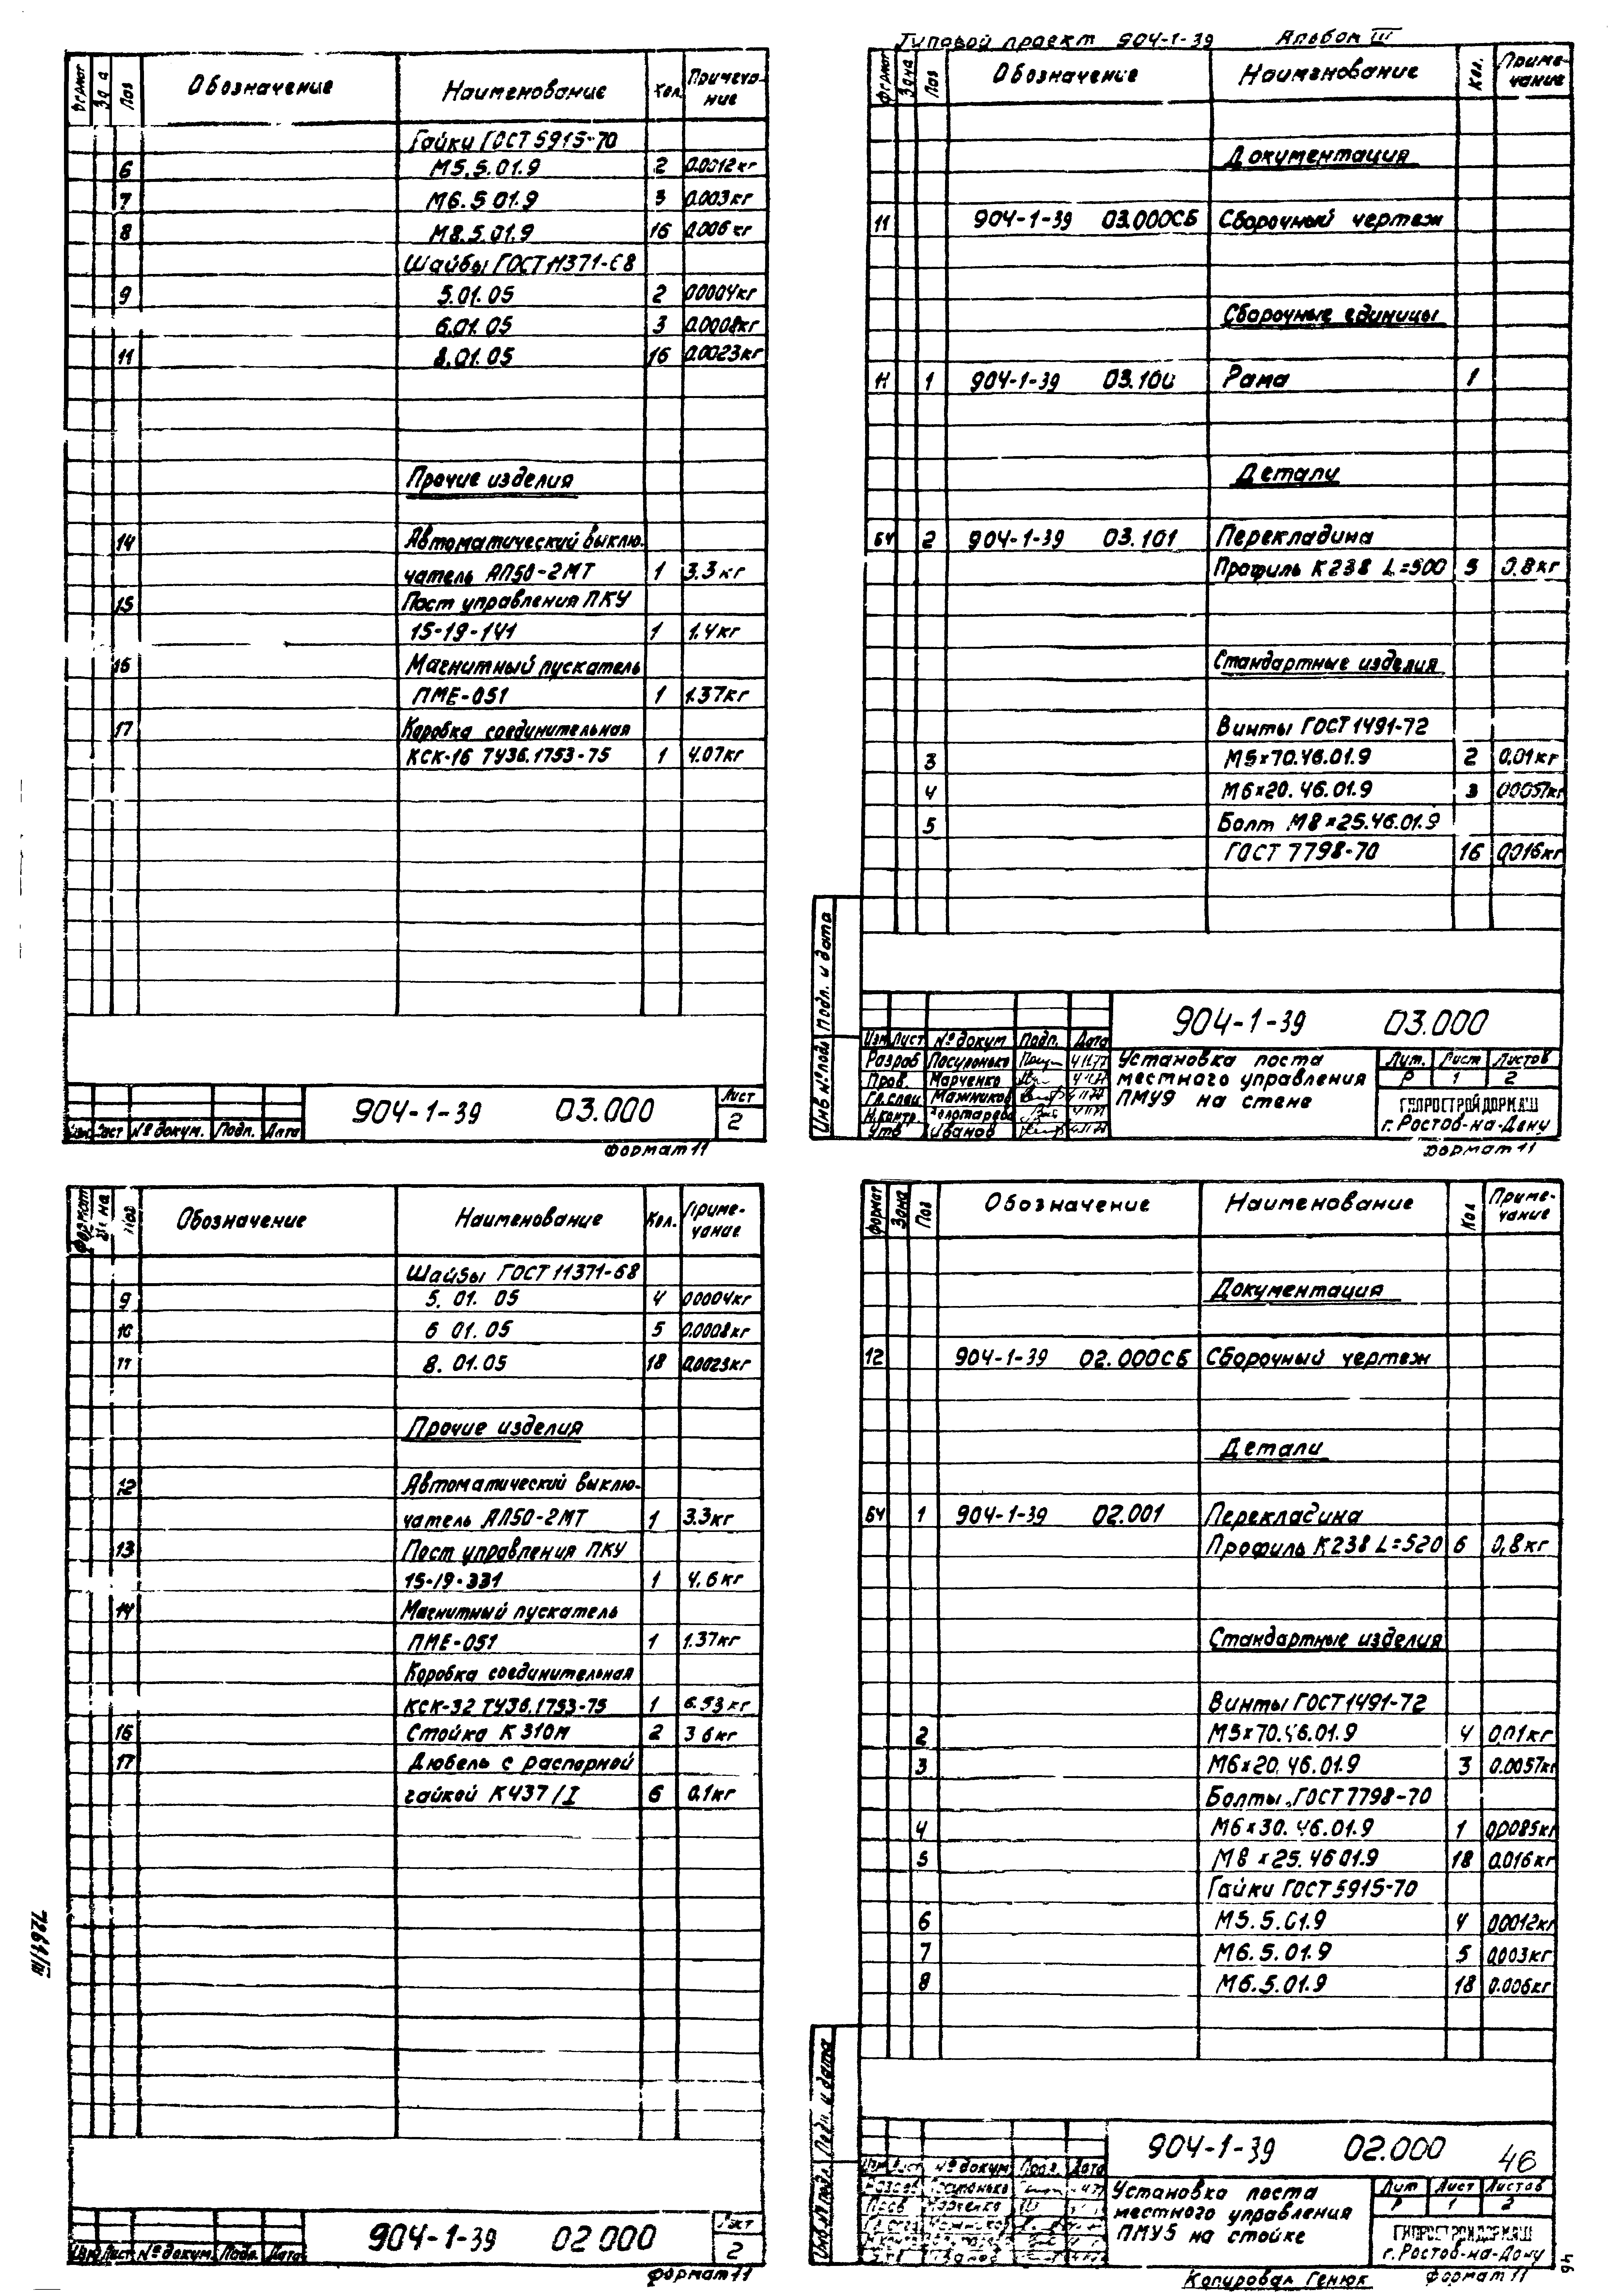 Типовой проект 904-1-39 Альбом III
Формат Зона Поз Обозначение Наименование Кол. Примечание
Гайки ГОСТ 5915-70
6 М5.5.01.9 2 0.0012кг
7 М6.5 01.9 3 0.003кг
8 М8.5.01.9 16 0.006кг
Шайбы ГОСТ 11371-68
9 5.01.05 2 00004кг
6.01.05 3 0.0008кг
11 8.01.05 16 0.0023кг
Прочие изделия
14 Автоматический выклю-
чатель АП50-2МТ 1 3.3кг
15 Пост управления ПКУ
15-19-141 1 1.4кг
16 Магнитный пускатель
ПМЕ-051 1 1.37кг
17 Коробка соединительная
КСК-16 ТУ36.1753-75 1 4.07кг
904-1-39 03.000 Лист 2
Изм Лист № докум. Подп. Дата
формат 11
Формат Зона Поз Обозначение Наименование Кол. Приме-
чание
Документация
11 904-1-39 03.000СБ Сборочный чертеж
Сборочные единицы
11 1 904-1-39 03.100 Рама 1
Детали
БЧ 2 904-1-39 03.101 Перекладина
Профиль К238 L=500 5 0.8кг
Стандартные изделия
Винты ГОСТ 1491-72
3 М5×70.46.01.9 2 0,01кг
4 М6×20.46.01.9 3 00057кг
5 Болт М8×25.46.01.9
ГОСТ 7798-70 16 0,016кг
Инв № подл Подп. и дата
904-1-39 03.000
Изм Лист № докум Подп. Дата
Разраб
Пров. Марченко
Гл.спец Мажников
Н.контр. Золотарева
Утв Иванов
Установка поста
местного управления
ПМУ9 на стене
Лит. Лист Листов
Р 1 2
ГИПРОСТРОЙДОРМАШ
г. Ростов-на-Дону
формат 11
Формат Зона Поз Обозначение Наименование Кол. Приме-
чание
Шайбы ГОСТ 11371-68
9 5. 01. 05 4 00004кг
10 6 01.05 5 0.0008кг
11 8. 01.05 18 0,0023кг
Прочие изделия
12 Автоматический выклю-
чатель АП50-2МТ 1 3.3кг
13 Пост управления ПКУ
15-19-331 1 4.6кг
14 Магнитный пускатель
ПМЕ-051 1 1.37кг
Коробка соединительная
КСК-32 ТУ36.1753-75 1 6.53кг
16 Стойка К 310М 2 3 6кг
17 Дюбель с распорной
гайкой К437/I 6 0.1кг
7264/III
904-1-39 02 000 Лист 2
Изм Лист № докум. Подп. Дата
формат 11
Формат Зона Поз Обозначение Наименование Кол Приме-
чание
Документация
12 904-1-39 02.000СБ Сборочный чертеж
Детали
БЧ 1 904-1-39 02.001 Перекладина
Профиль К238 L=520 6 0,8кг
Стандартные изделия
Винты ГОСТ 1491-72
2 М5×70.46.01.9 4 0,01кг
3 М6×20.46.01.9 3 0.0057кг
Болты ГОСТ 7798-70
4 М6×30.46.01.9 1 0,0085кг
5 М8 ×25.46 01.9 18 0.016кг
Гайки ГОСТ 5915-70
6 М5.5.01.9 4 0.0012кг
7 М6.5.01.9 5 0,003кг
8 М6.5.01.9 18 0.006кг
Инв № подл Подп. и дата
904-1-39 02.000 46
Изм Лист № докум Подп. Дата
Установка поста
местного управления
ПМУ5 на стойке
Лит Лист Листов
Р 1 2
ГИПРОСТРОЙДОРМАШ
г. Ростов-на-Дону
Копировал Генюк формат 11
46